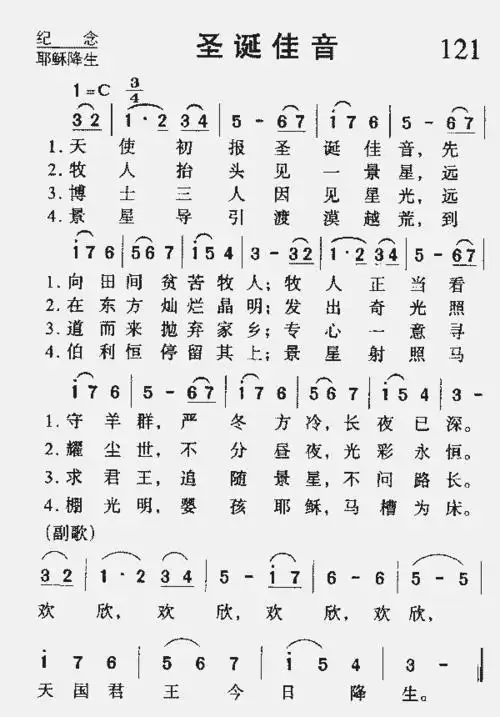 纪 念
耶稣降生
圣诞佳音
121
1=C 3/4
3 2 | 1 · 2 3 4 | 5 - 6 7 | i 7 6 | 5 - 6 7 |
1. 天 使 初 报 圣 诞 佳 音，先
2. 牧 人 抬 头 见 一 景 星，远
3. 博 士 三 人 因 见 星 光，远
4. 景 星 导 引 渡 漠 越 荒，到
i 7 6 | 5 6 7 | i 5 4 | 3 - 3 2 | 1 · 2 3 4 | 5 - 6 7 |
1. 向 田 间 贫 苦 牧 人；牧 人 正 当 看
2. 在 东 方 灿 烂 晶 明；发 出 奇 光 照
3. 道 而 来 抛 弃 家 乡；专 心 一 意 寻
4. 伯 利 恒 停 留 其 上；景 星 射 照 马
i 7 6 | 5 - 6 7 | i 7 6 | 5 6 7 | i 5 4 | 3 -
1. 守 羊 群，严 冬 方 冷，长 夜 已 深。
2. 耀 尘 世，不 分 昼 夜，光 彩 永 恒。
3. 求 君 王，追 随 景 星，不 问 路 长。
4. 棚 光 明，婴 孩 耶 稣，马 槽 为 床。
(副歌)
3 2 | 1 · 2 3 4 | 5 - i 7 | 6 - 6 | 5 - 5 |
欢 欣，欢 欣，欢 欣，欢 欣，
i 7 6 | 5 6 7 | i 5 4 | 3 - ‖
天 国 君 王 今 日 降 生。